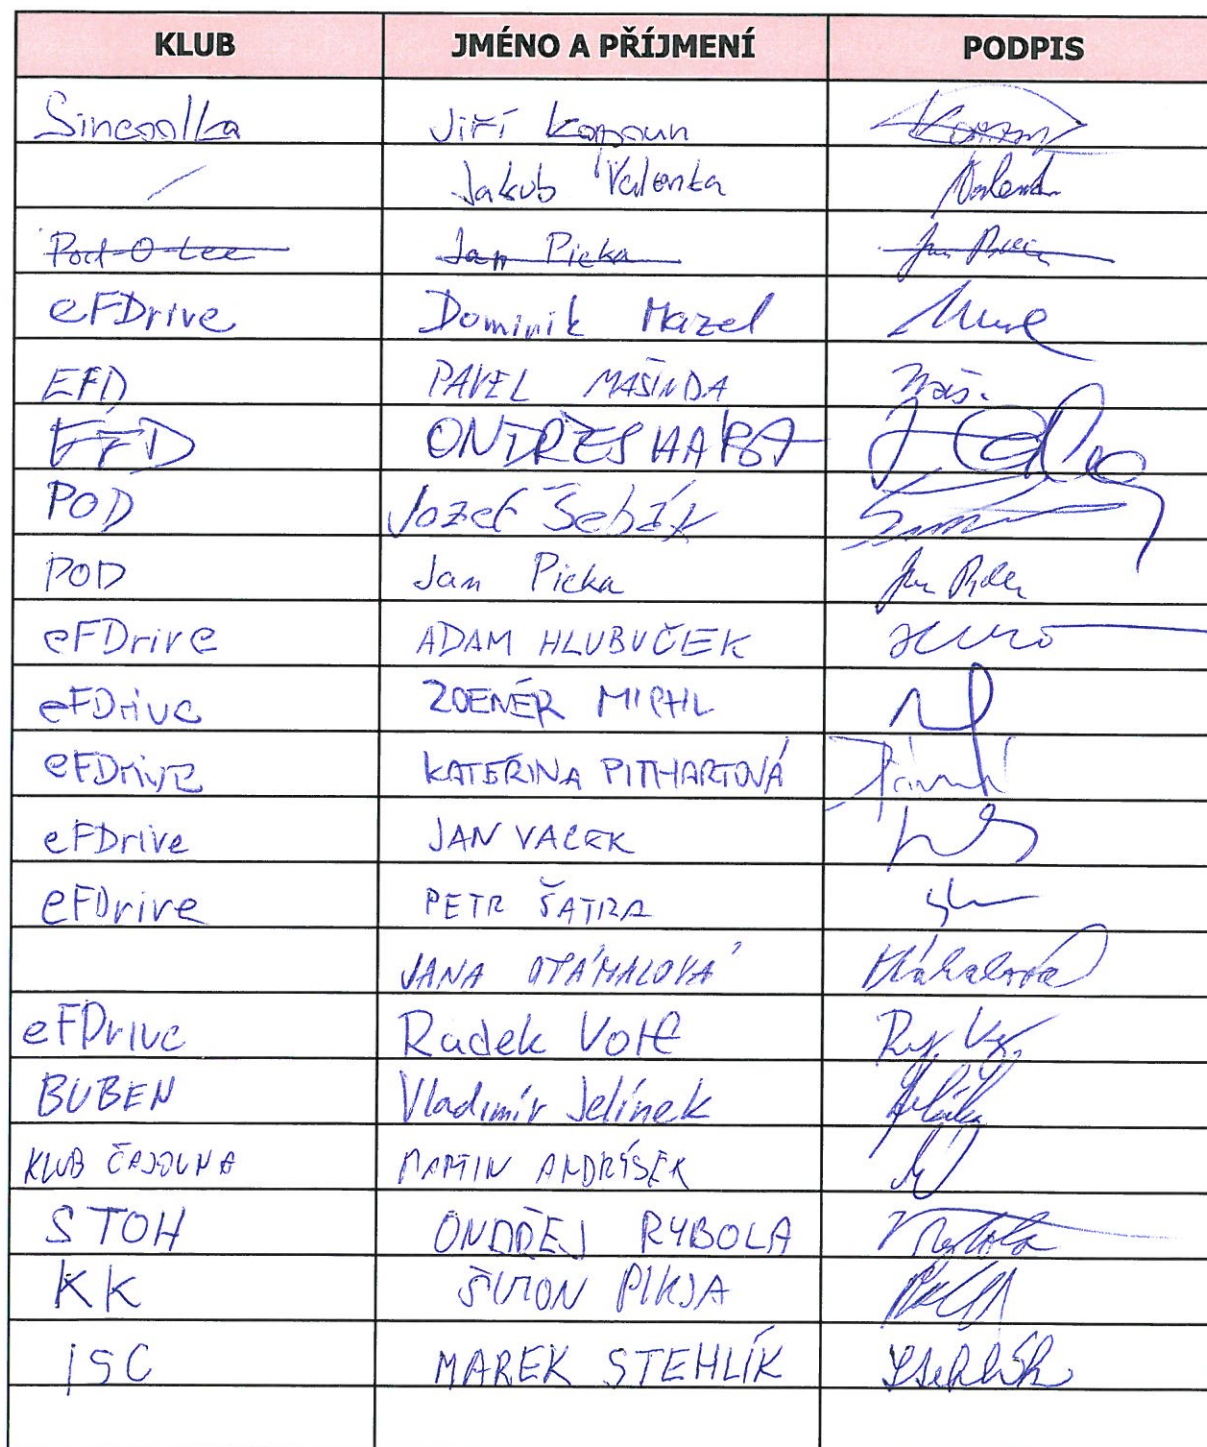 KLUB JMÉNO A PŘÍJMENÍ PODPIS
Sincoolka Jiří Kapoun
/ Jakub Valenta Valenta
Pod-O-Lee Jan Picka Jan Picka
eFDrive Dominik Mazel
EFD PAVEL MAŠINDA Maš.
EFD ONDŘEJ
POD Jozef Šebák
POD Jan Picka Jan Picka
eFDrive ADAM HLUBUČEK
eFDrive ZDENĚK MICHL
eFDrive KATEŘINA PITHARTOVÁ
eFDrive JAN VACEK
eFDrive PETR ŠATRA
JANA OTÁHALOVÁ Otáhalová
eFDrive Radek
BUBEN Vladimír Jelínek
KLUB ČAJOVNA MARTIN ANDRÝSEK
STOH ONDŘEJ RYBOLA Rybola
KK ŠIMON
ISC MAREK STEHLÍK Stehlík